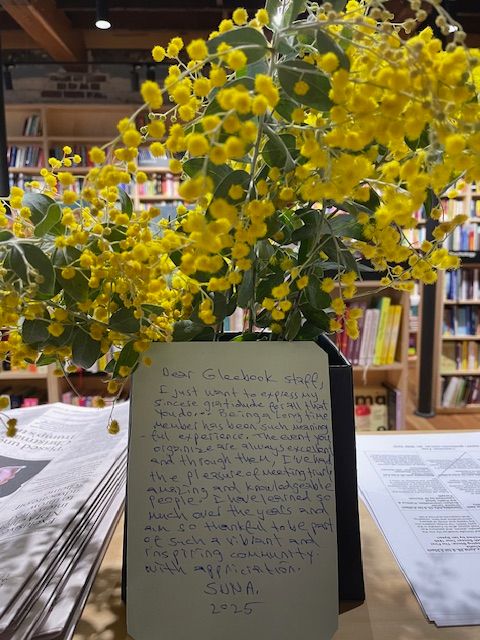 Dear Gleebook staff,
I just want to express my
sincese gratitude for all that
you do... Being a long time
member has been such meaning
-ful experience. The event you
organize are always excellent
and through them I've had
the pleasure of meeting truly
amazing and knowledgeable
people. I have learned so
much over the years and
am so thankful to be part
of such a vibrant and
inspiring community.
with appriciation.
SUNA.
2025